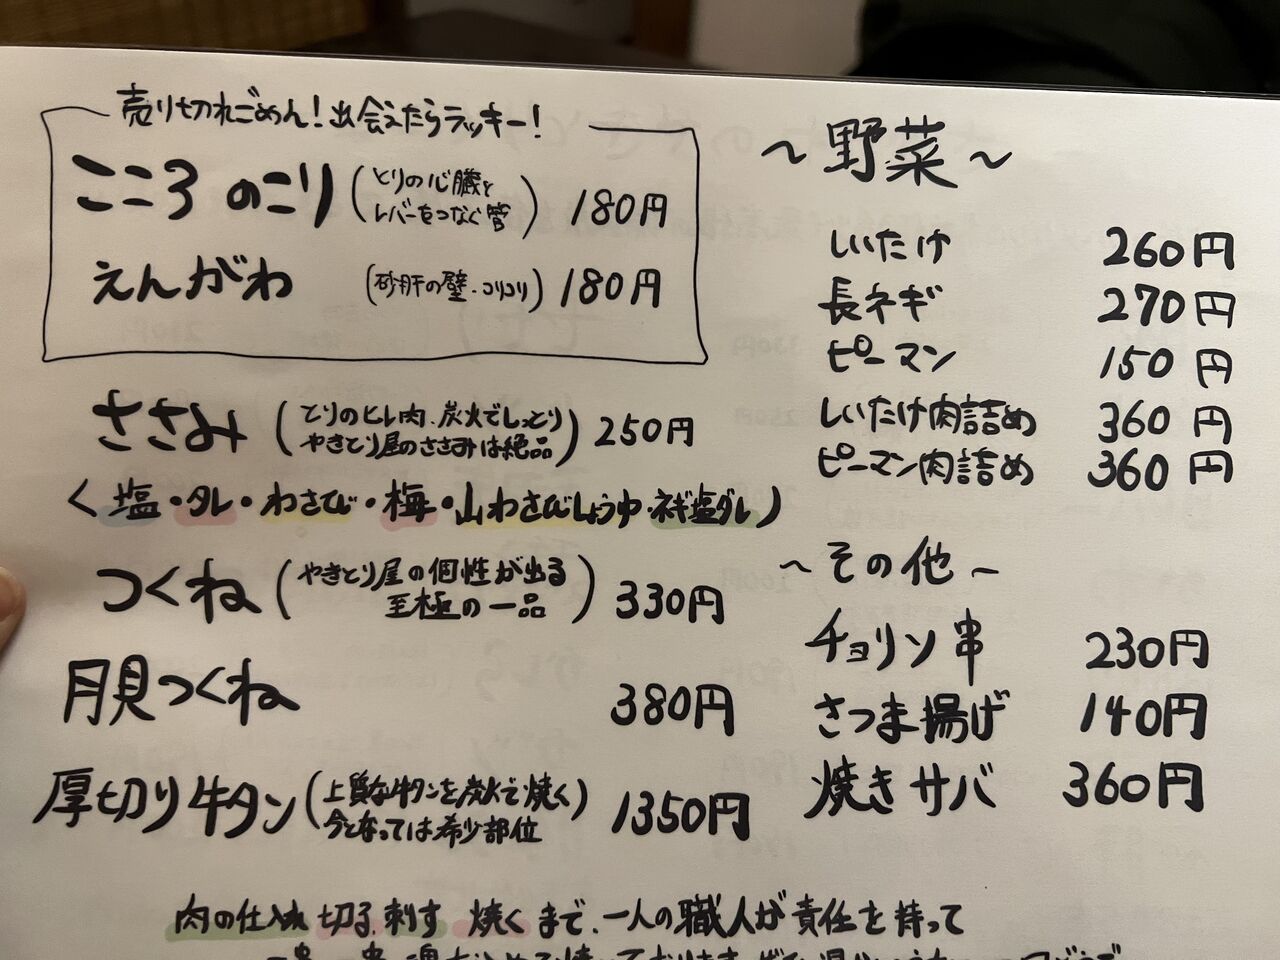 売り切れごめん!出会えたらラッキー!
こころのこり(とりの心臓と
レバーをつなぐ管) 180円
えんがわ (砂肝の壁・コリコリ) 180円
ささみ(とりのヒレ肉、炭火でしっとり
やきとり屋のささみは絶品) 250円
〈塩・タレ・わさび・梅・山わさびしょうゆ・ネギ塩ダレ)
つくね(やきとり屋の個性が出る
至極の一品) 330円
月見つくね 380円
厚切り牛タン(上質な牛タンを炭火で焼く
今となっては希少部位) 1350円
~野菜~
しいたけ 260円
長ネギ 270円
ピーマン 150円
しいたけ肉詰め 360円
ピーマン肉詰め 360円
~その他~
チョリソ串 230円
さつま揚げ 140円
焼きサバ 360円
肉の仕入れ 切る、刺す 焼くまで、一人の職人が責任を持って